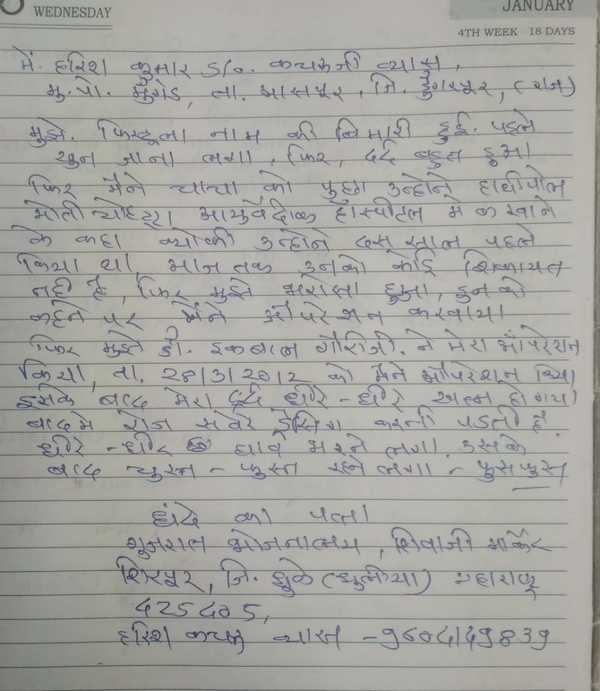 WEDNESDAY
JANUARY
4TH WEEK 18 DAYS
में. हरिश कुमार S/o. कचरुजी व्यास,
मु. पो. मुंगेड, ता. आसपुर, जि. डुंगरपुर, (राज)
मुझे. फिस्टूला नाम की बिमारी हुई. पहले
खुन जाना लगा, फिर, दर्द बहुत हुआ।
फिर मैने चाचा को पुछा उन्होने हाथीपोल
मोती चोहट्टा आयुर्वेदीक हॉस्पीटल मे करवाने
के कहा क्योकी उन्होने दस साल पहले
किया था, आज तक उनको कोई शिकायत
नही है, फिर मुझे भरोसा हुआ, इनको
कहेने पर मैने ऑपरेशन करवाया।
फिर मुझे डॉ. इकबाल गौरीजी. ने मेरा ऑपरेशन
किया, ता. 28/3/2012 को मैने ऑपरेशन किया
इसके बाद मेरा दर्द धीरे-धीरे खत्म हो गया।
बादमे रोज सवेरे ड्रेसिंग करनी पडती है.
धीरे-धीरे घाव भरने लगा। उसके
बाद चुस्त-फुस्त रहने लगा -
धंदे का पता।
गुजराल भोजनालय, शिवाजी मार्केट
शिरपुर, जि. धुळे (धुलीया) महाराष्ट्र
425405,
हरिश कचरु व्यास - 9604149839